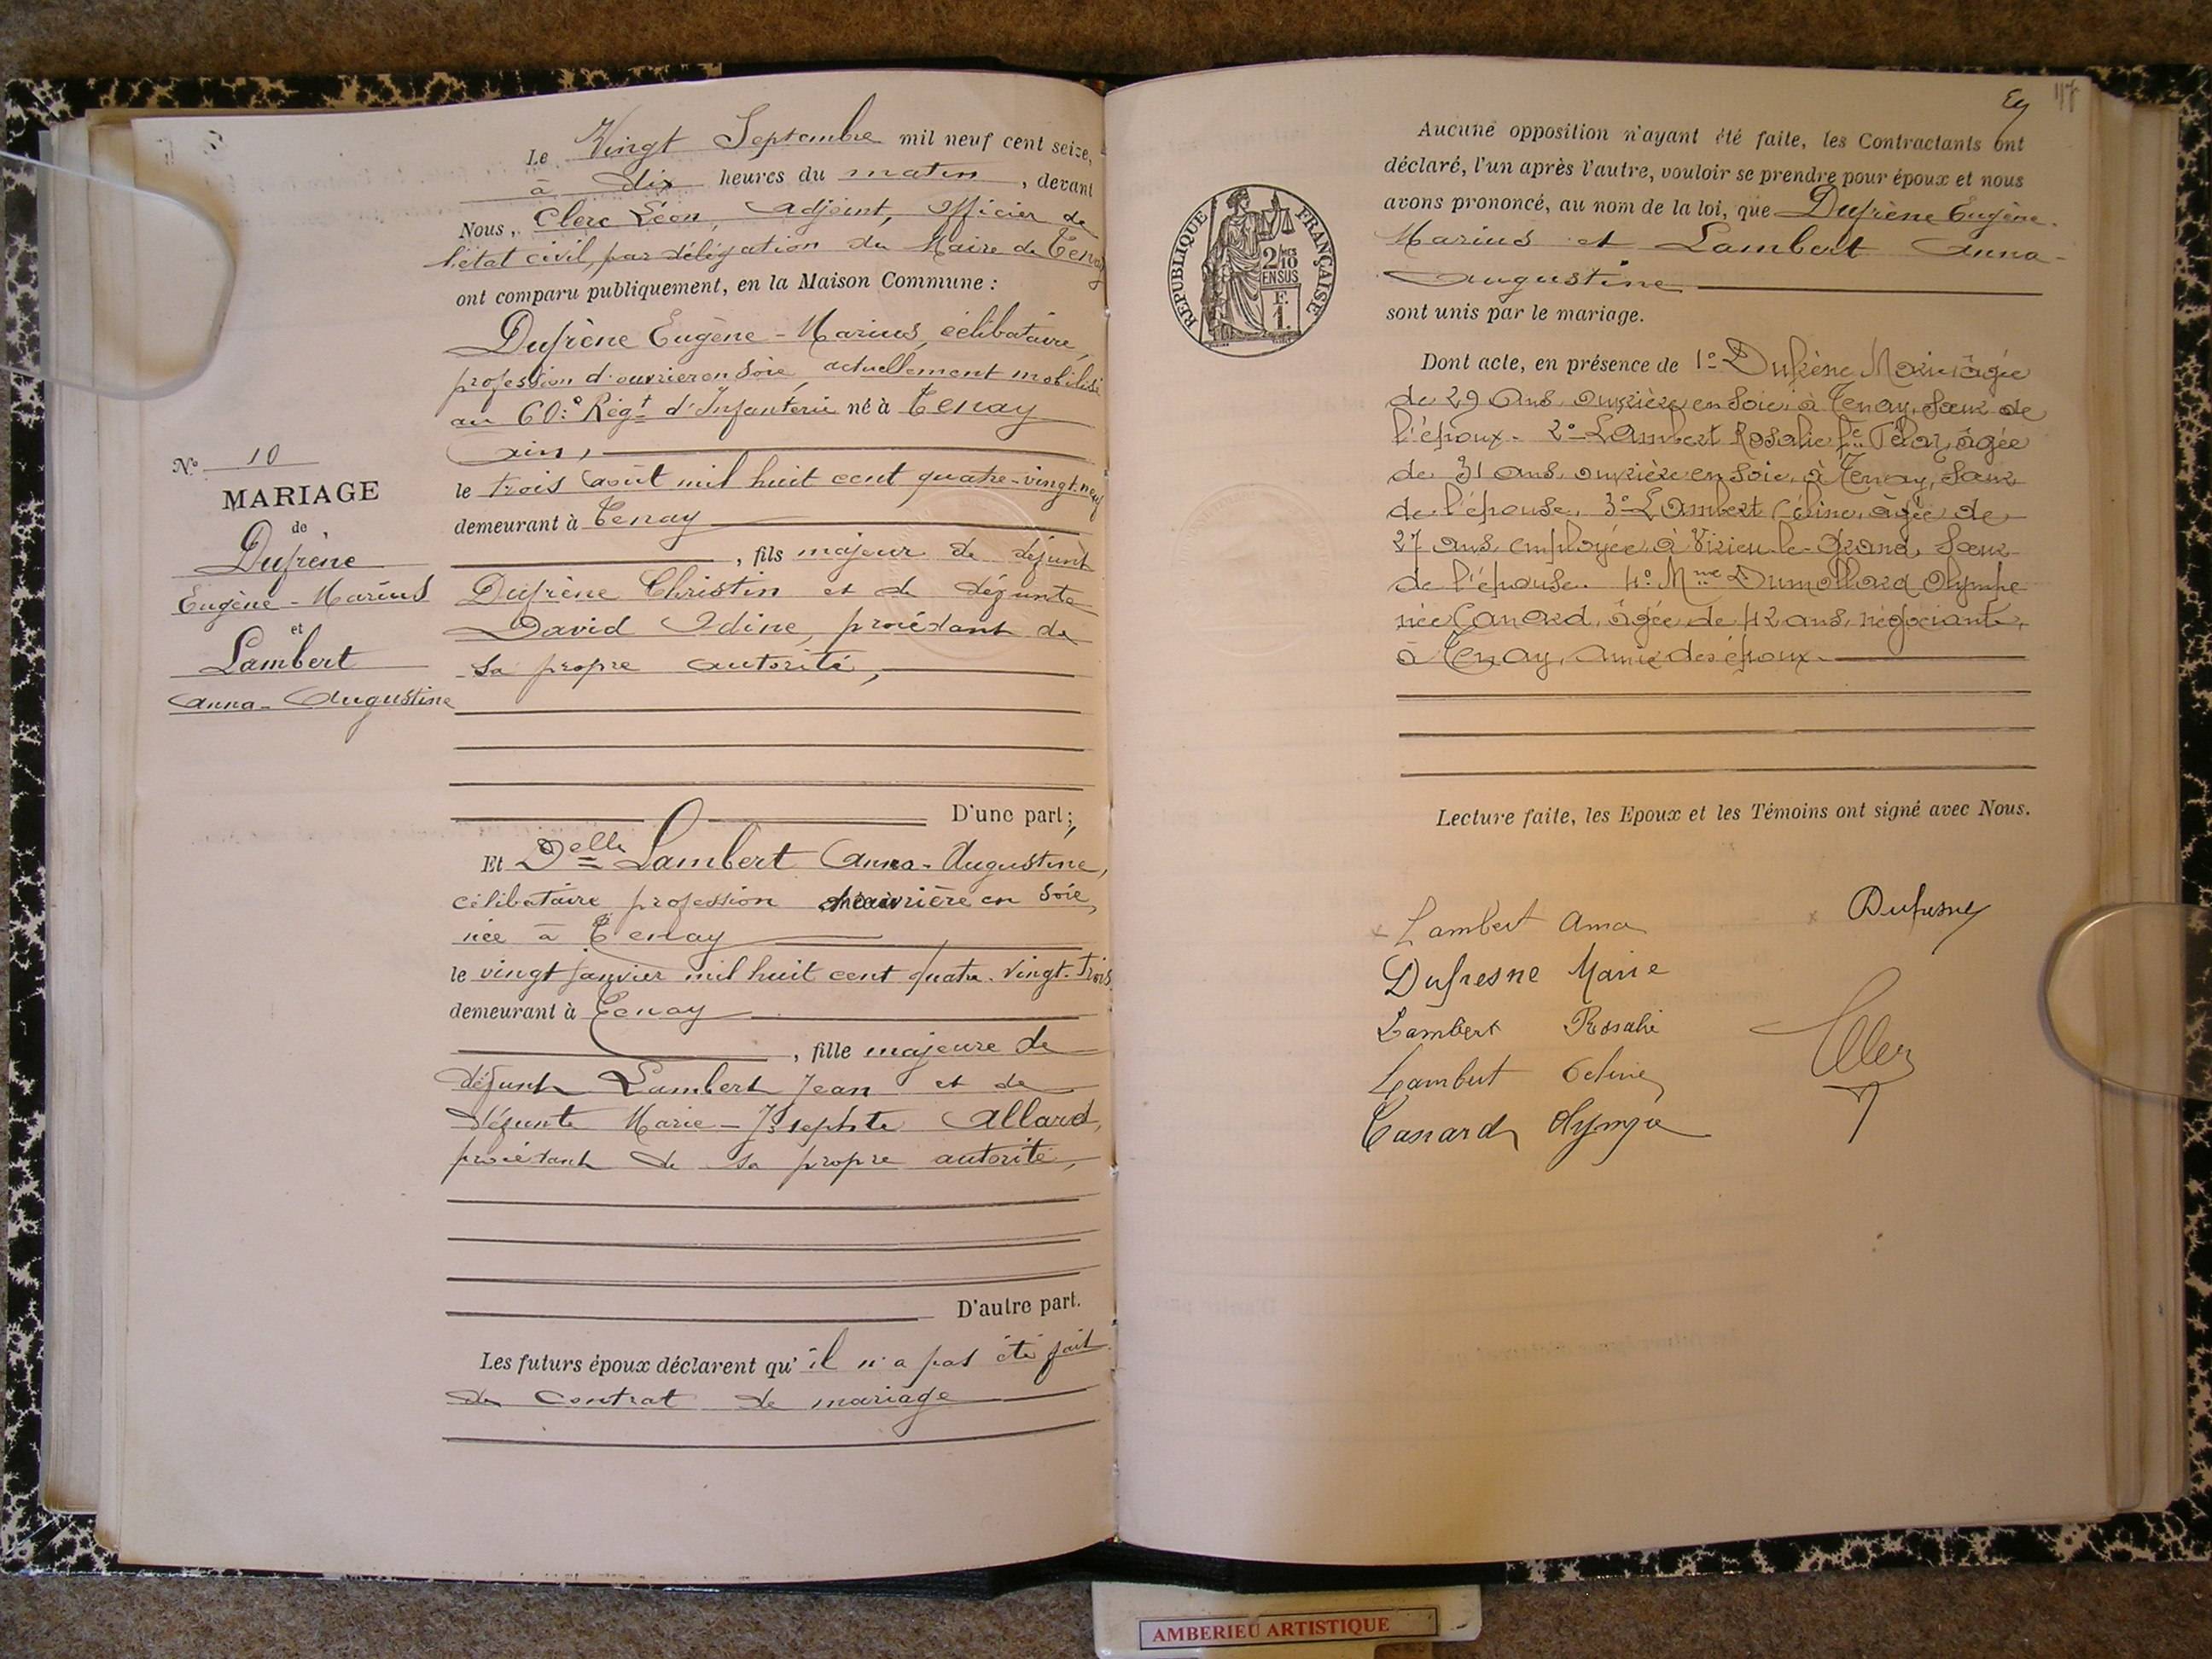 Le Vingt Septembre mil neuf cent seize,
à dix heures du matin, devant
Nous, Clerc Léon, adjoint, officier de
l'état civil, par délégation du Maire de Tenay
ont comparu publiquement, en la Maison Commune :
Dufrène Eugène-Marius, célibataire,
profession d'ouvrier en soie, actuellement mobilisé
au 60e Régt d'Infanterie né à Tenay
(Ain),
le trois août mil huit cent quatre-vingt-neuf
demeurant à Tenay
, fils majeur de défunt
Dufrène Christin et de défunte
David Odine, procédant de
sa propre autorité,
D'une part;
Et Delle Lambert Anna-Augustine,
célibataire profession ouvrière en soie,
née à Tenay
le vingt janvier mil huit cent quatre-vingt-trois
demeurant à Tenay
, fille majeure de
défunt Lambert Jean et de
défunte Marie-Josephte Allard,
procédant de sa propre autorité,
D'autre part.
Les futurs époux déclarent qu'il n'a pas été fait
de contrat de mariage
N° 10
MARIAGE
de
Dufrène
Eugène-Marius
et
Lambert
Anna-Augustine
47
RÉPUBLIQUE FRANÇAISE
2/10
EN SUS
F.
1.
Aucune opposition n'ayant été faite, les Contractants ont
déclaré, l'un après l'autre, vouloir se prendre pour époux et nous
avons prononcé, au nom de la loi, que Dufrène Eugène-
Marius et Lambert Anna-
Augustine
sont unis par le mariage.
Dont acte, en présence de 1°- Dufrène Marie âgée
de 29 ans ouvrière en soie, à Tenay, sœur de
l'époux. 2°- Lambert Rosalie fe Pélaz, âgée
de 31 ans, ouvrière en soie, à Tenay, sœur
de l'épouse. 3°- Lambert Céline, âgée de
27 ans, employée à Virieu-le-Grand, sœur
de l'épouse. 4° Mme Dumollard Olympe
née Canard, âgée de 42 ans, négociante,
à Tenay, amie des époux.
Lecture faite, les Epoux et les Témoins ont signé avec Nous.
x Lambert Anna
x Dufresne
Dufresne Marie
Lambert Rosalie
Lambert Celine
Canard Olympe
AMBERIEU ARTISTIQUE